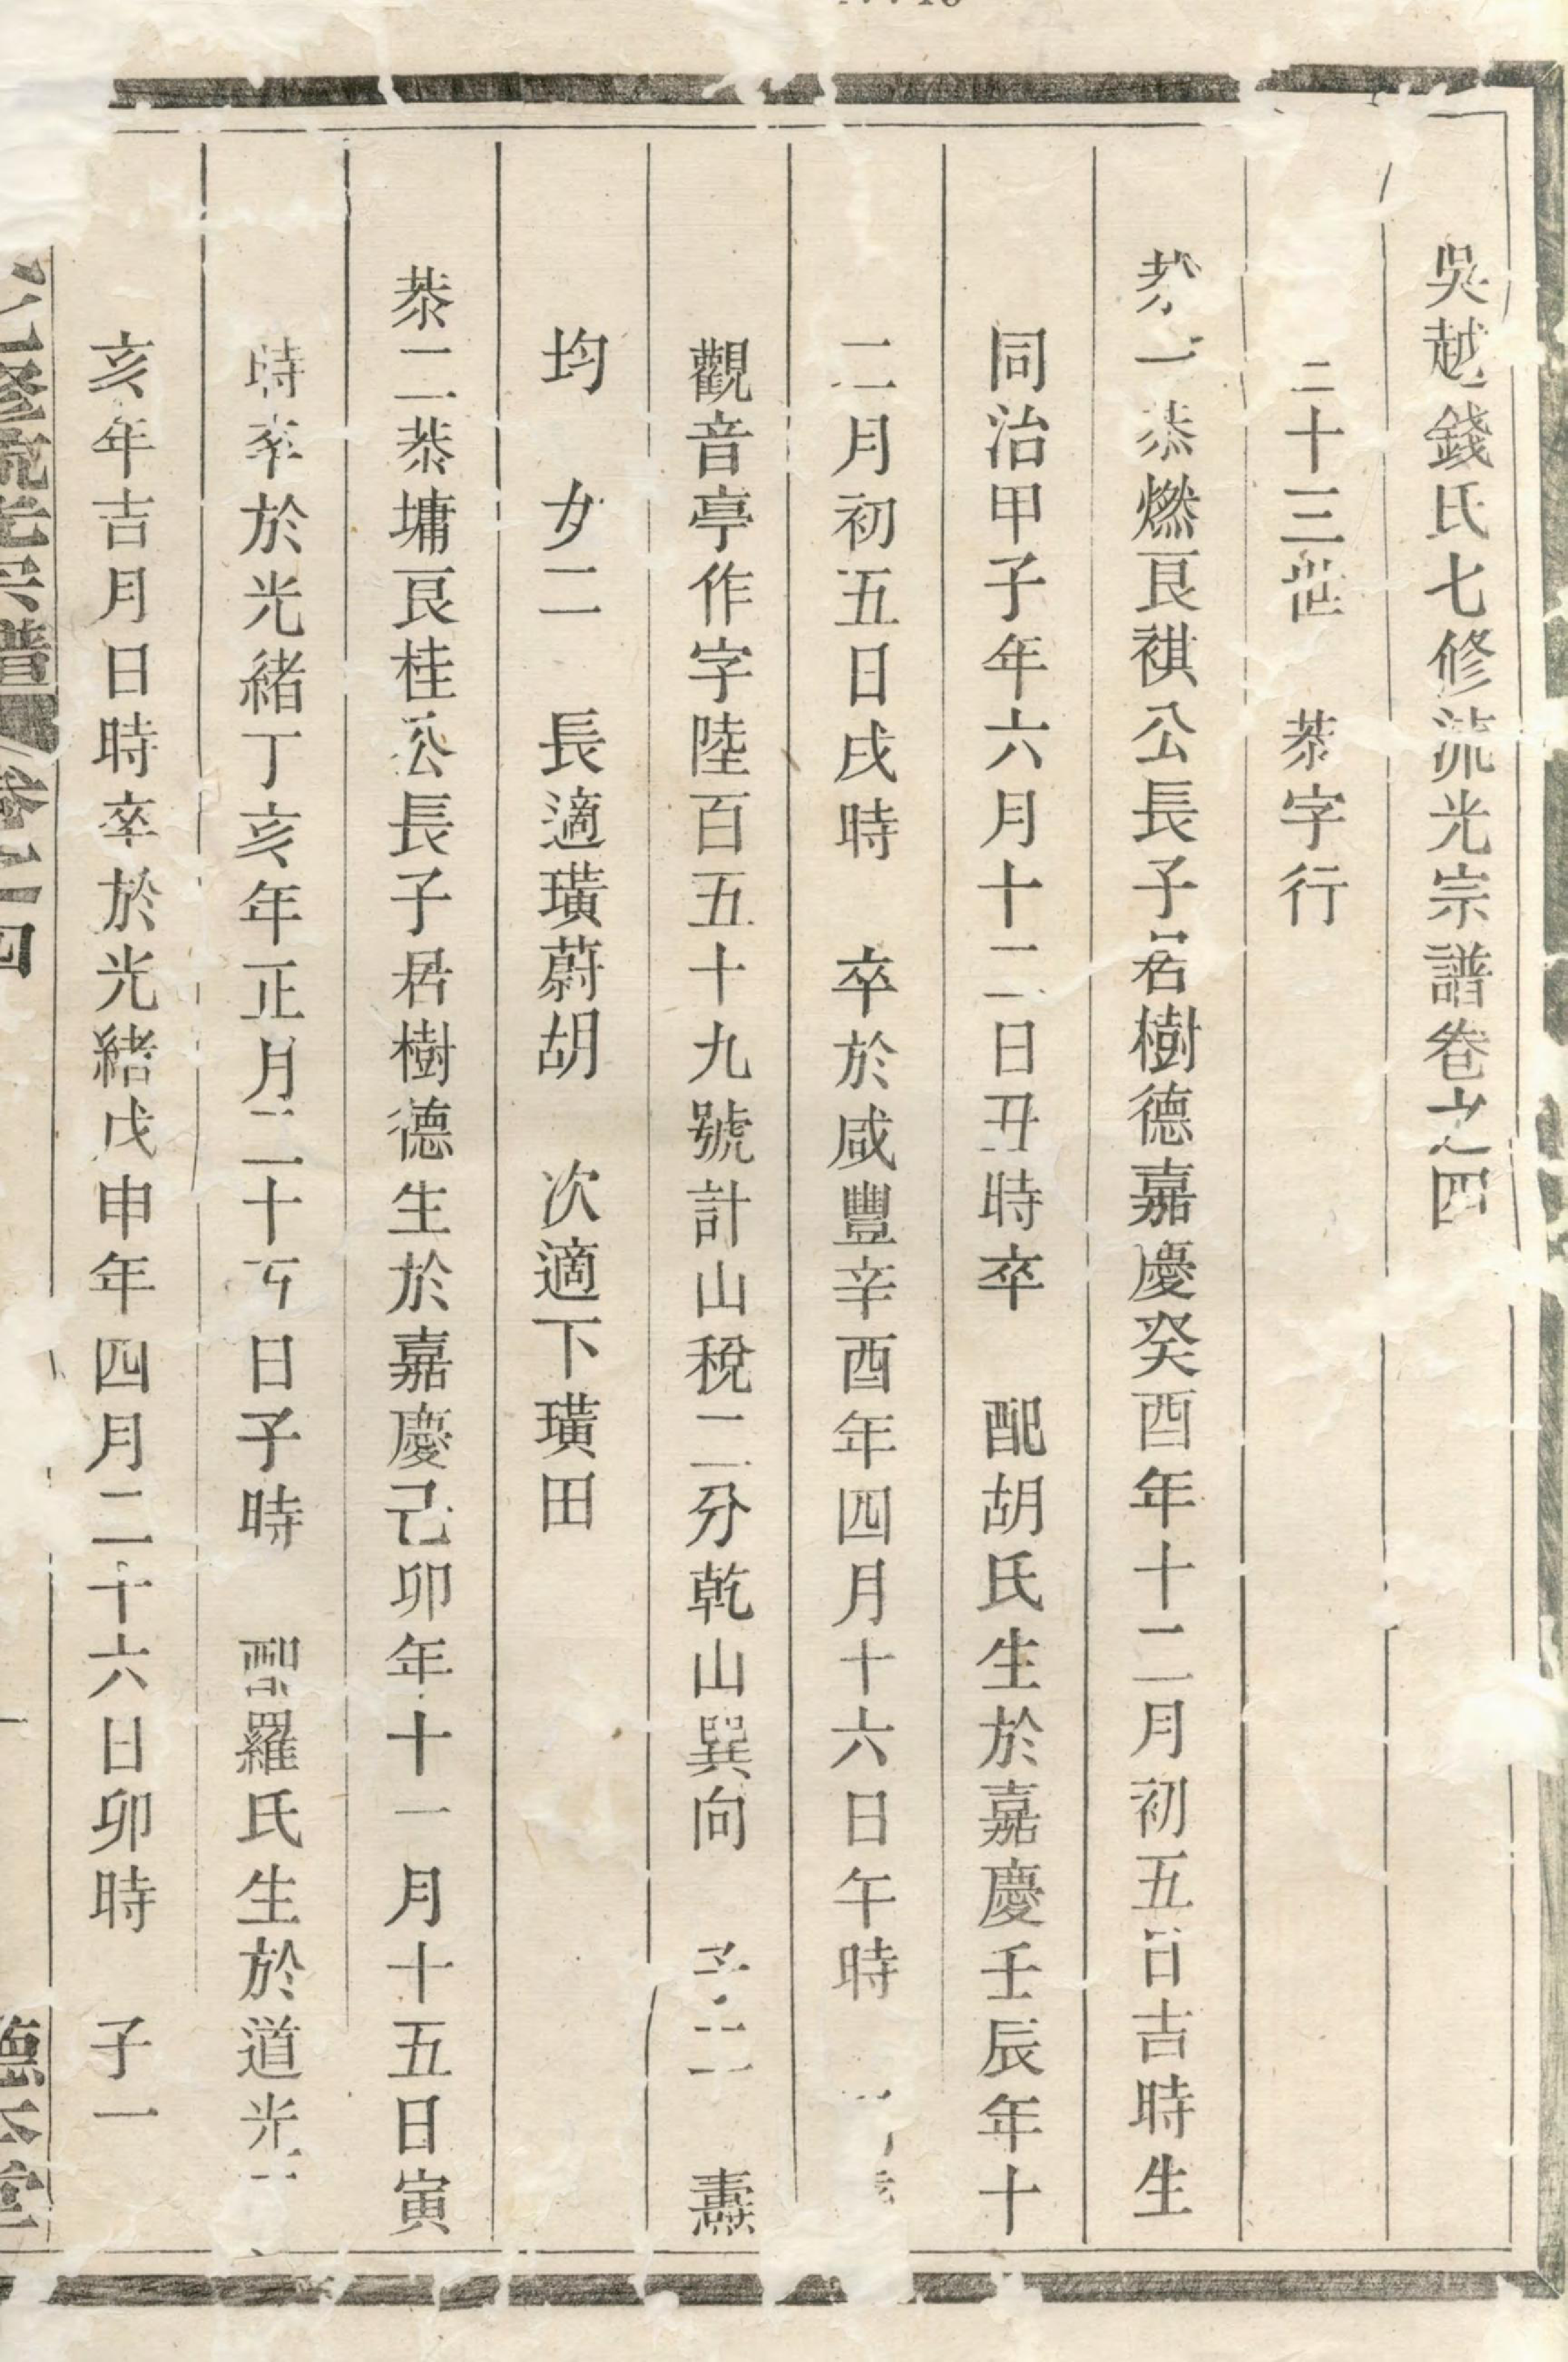 吳越錢氏七修流光宗譜卷之四
二十三世 恭字行
恭一恭燃艮祺公長子居樹德嘉慶癸酉年十二月初五日吉時生
同治甲子年六月十二日丑時卒 配胡氏生於嘉慶壬辰年十
二月初五日戌時 卒於咸豐辛酉年四月十六日午時
觀音亭作字陸百五十九號計山稅二分乾山巽向 子二 燾
均 女二 長適璜蔚胡 次適下璜田
恭二恭墉艮桂公長子居樹德生於嘉慶己卯年十一月十五日寅
時卒於光緒丁亥年正月二十 日子時 配羅氏生於道光
亥年吉月日時卒於光緒戊申年四月二十六日卯時 子一
七修流光宗譜 卷之四 德 堂